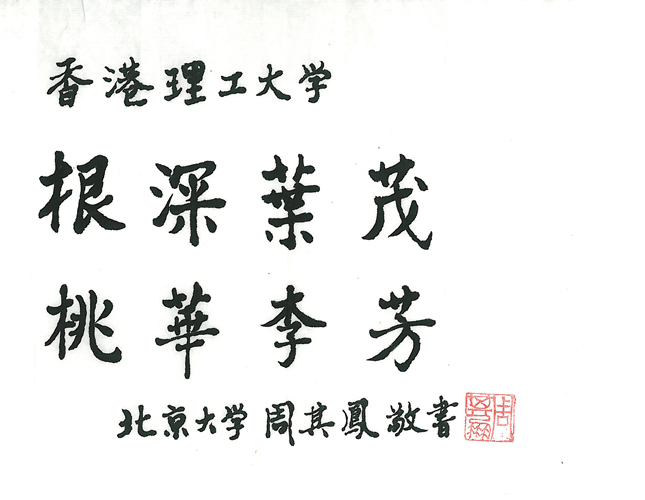 香港理工大学
根深葉茂
桃華李芳
北京大学周其鳳敬書
周其鳳